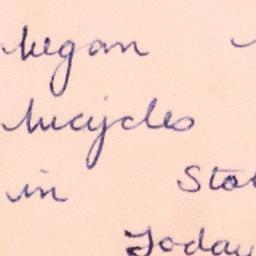 began
bicycles
in Sto
Today